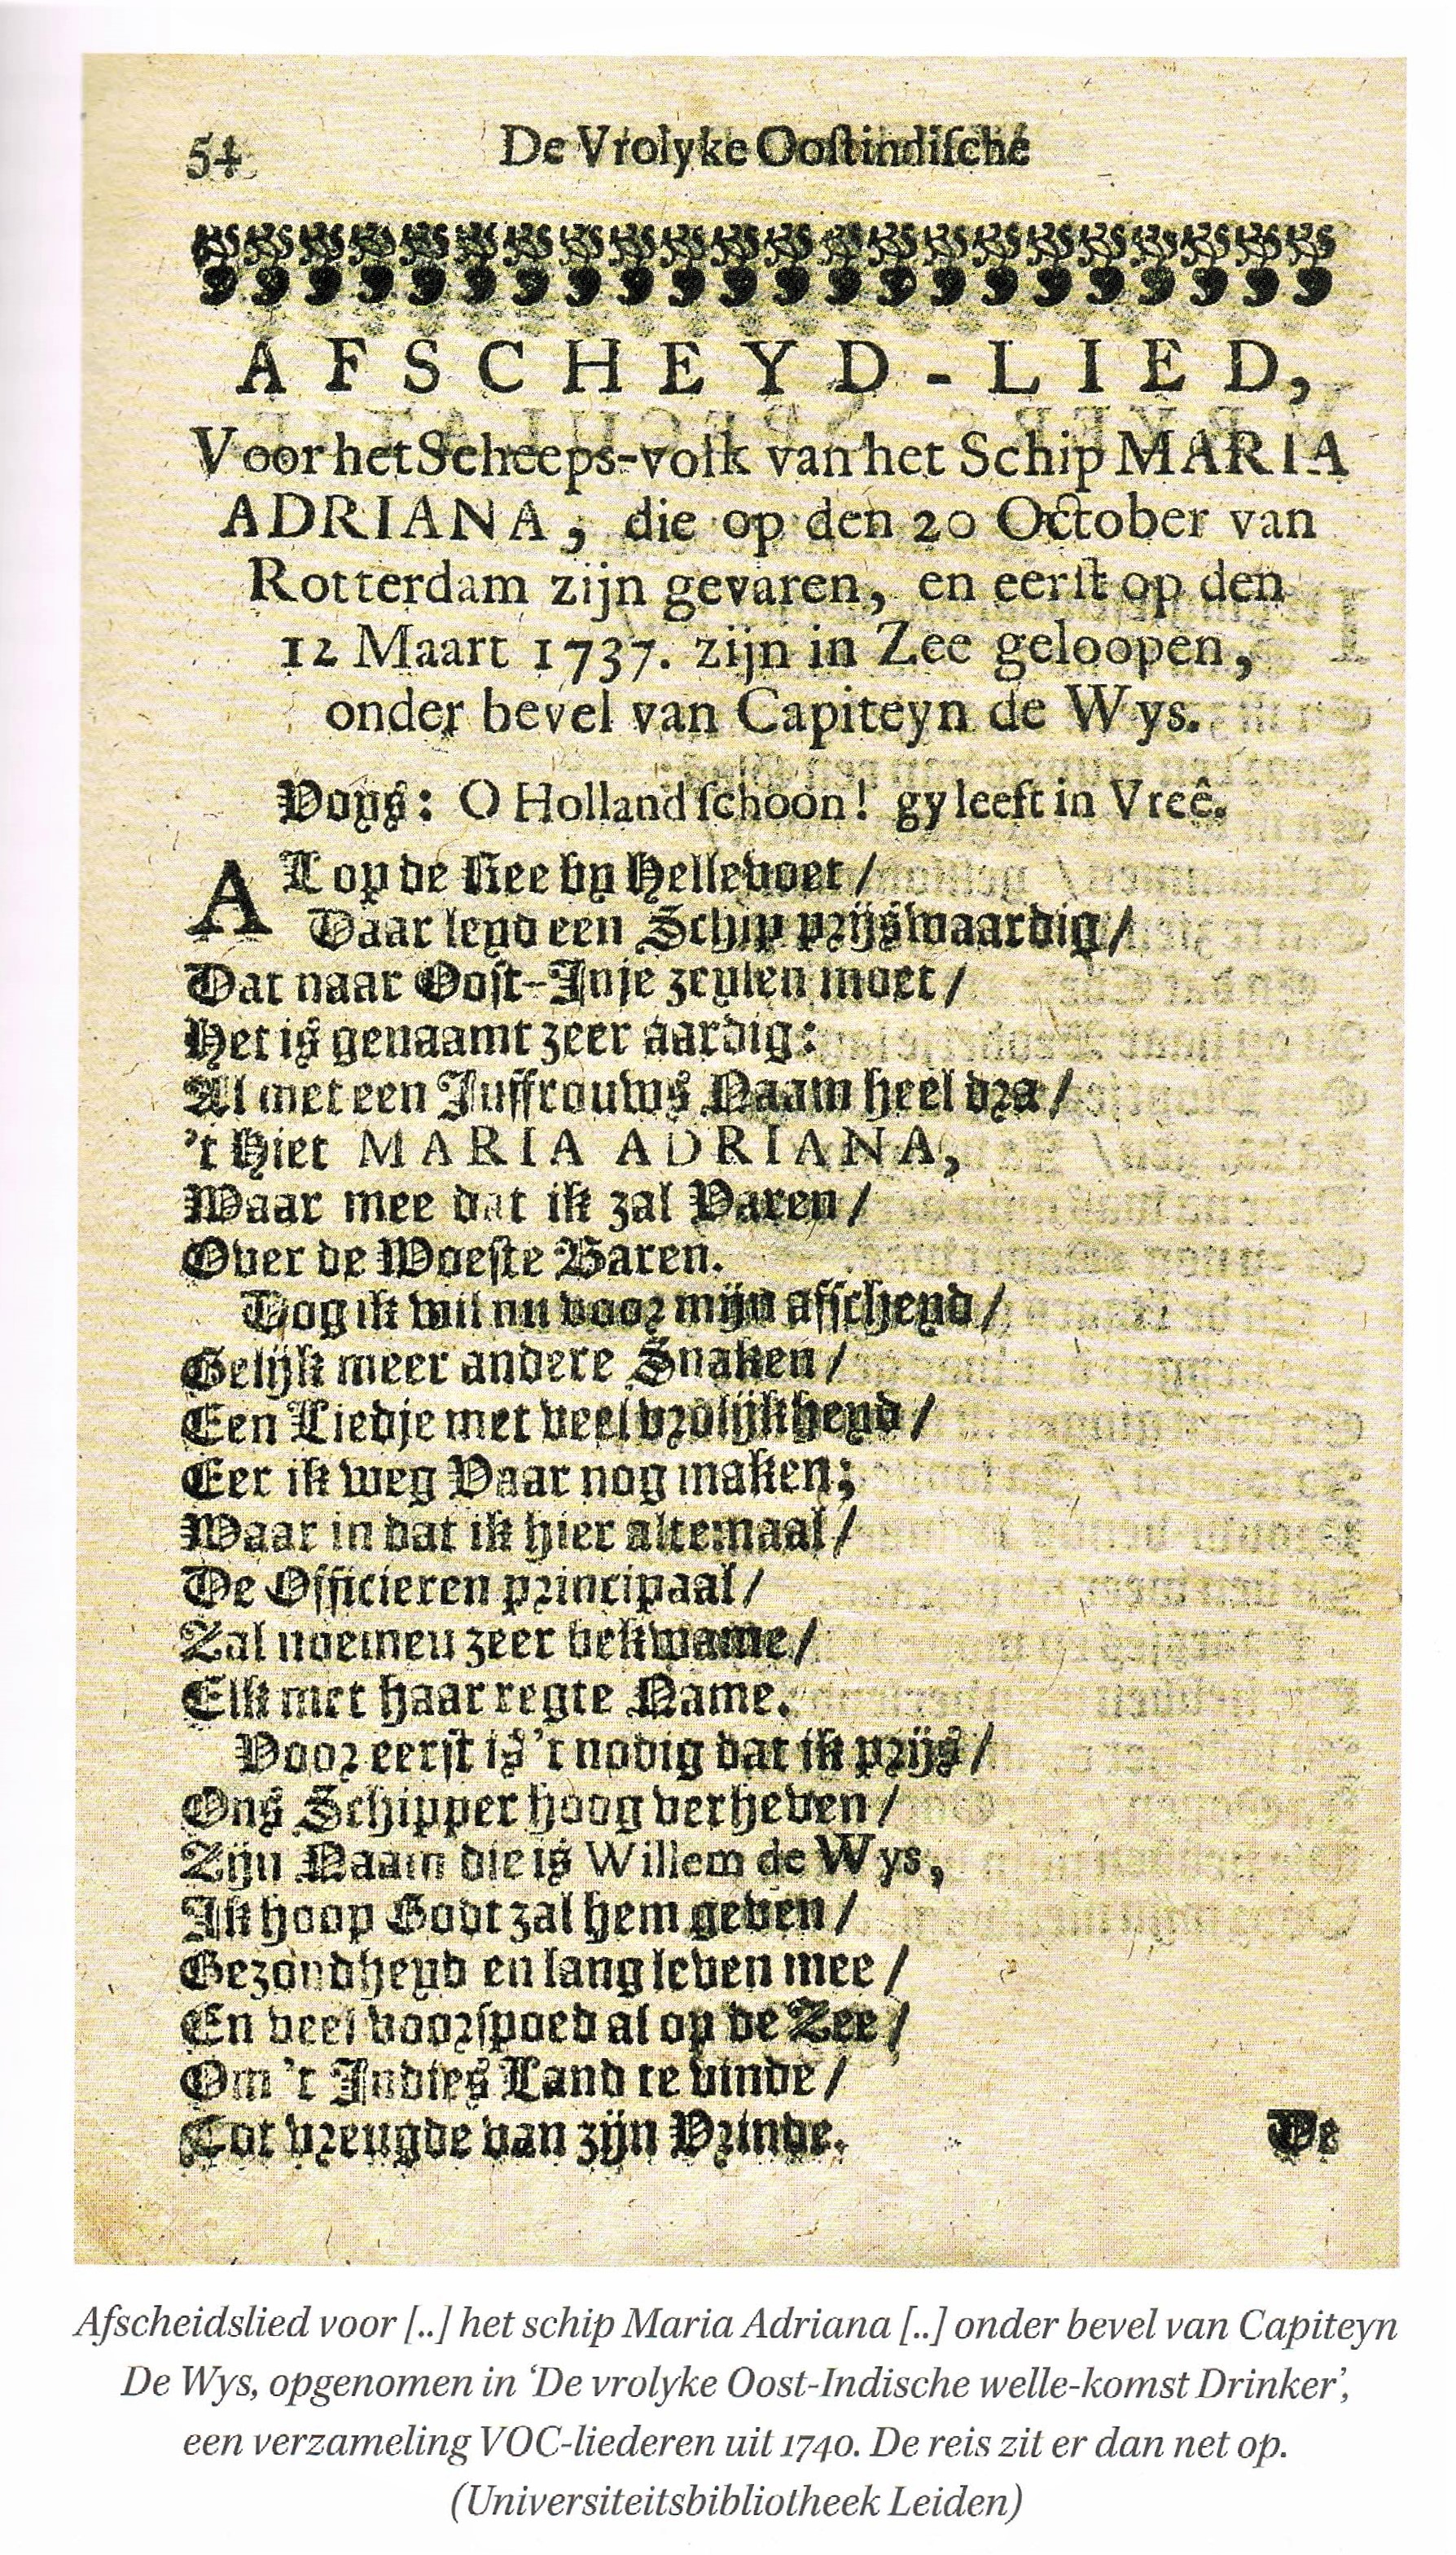 54 De Vrolyke Oostindische
AFSCHEYD-LIED,
Voor het Scheeps-volk van het Schip MARIA
ADRIANA, die op den 20 October van
Rotterdam zijn gevaren, en eerst op den
12 Maart 1737. zijn in Zee geloopen,
onder bevel van Capiteyn de Wys.
Voys: O Holland schoon! gy leeft in Vreê.
AL op de Ree by Hellevoet /
Daar leyd een Schip prijswaardig /
Dat naar Oost-Inje zeylen moet /
Het is genaamt zeer aardig:
Al met een Juffrouws Naam heel dra /
't Hiet MARIA ADRIANA,
Waar mee dat ik zal Varen /
Over de Woeste Baren.
Dog ik wil nu voor mijn afscheyd /
Gelijk meer andere Snaken /
Een Liedje met veel vrolijkheyd /
Eer ik weg Vaar nog maken;
Waar in dat ik hier altemaal /
De Officieren principaal /
Zal noemen zeer bekwame /
Elk met haar regte Name.
Voor eerst is 't nodig dat ik prijs /
Ons Schipper hoog verheven /
Zijn Naam die is Willem de Wys,
Ik hoop Godt zal hem geven /
Gezondheyd en lang leven mee /
En veel voorspoed al op de Zee /
Om 't Indies Land te vinde /
Tot vreugde van zijn Vrinde.
De
Afscheidslied voor [..] het schip Maria Adriana [..] onder bevel van Capiteyn
De Wys, opgenomen in ‘De vrolyke Oost-Indische welle-komst Drinker’,
een verzameling VOC-liederen uit 1740. De reis zit er dan net op.
(Universiteitsbibliotheek Leiden)